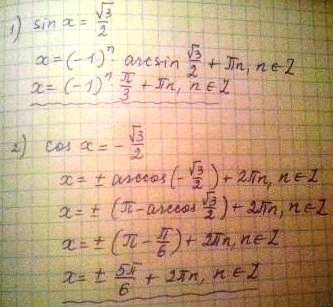 1) sin x = √3/2
x = (-1)ⁿ · arcsin √3/2 + πn, n ∈ Z
x = (-1)ⁿ π/3 + πn, n ∈ Z
2) cos x = -√3/2
x = ± arccos(-√3/2) + 2πn, n ∈ Z
x = ± (π - arccos √3/2) + 2πn, n ∈ Z
x = ± (π - π/6) + 2πn, n ∈ Z
x = ± 5π/6 + 2πn, n ∈ Z